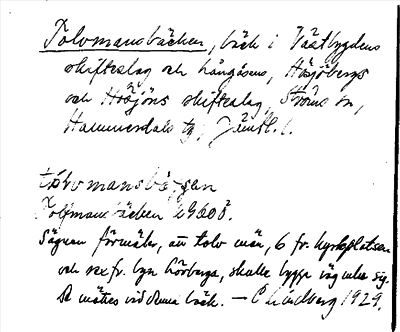 Tolvmansbäcken, bäck i Västbygdens
skifteslag och Långåsens, Hösjöbergs
och Hösjöns skifteslag, Ströms sn,
Hammerdals tg, Jämtl. l.
tólvmansbä
Tolfmansbäcken
Sägnen förmäler, att tolv män, 6 fr. kyrkplatsen
och sex fr. byn Lörberga, skulle bygga väg
De möttes vid denna bäck. — C Lindberg 1929.